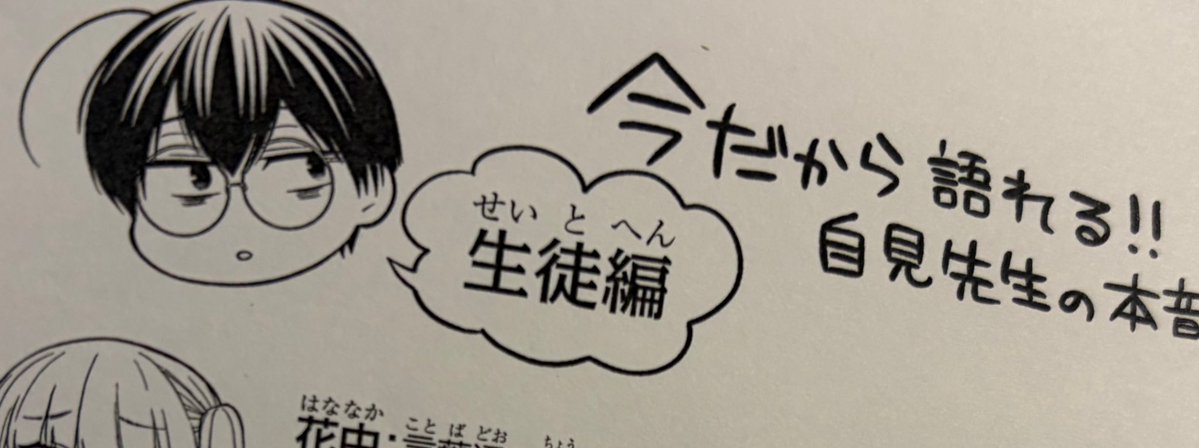 今だから語れる!!
自見先生の本音
せいとへん
生徒編
はななか ことばどお ちょう
花中:言葉通